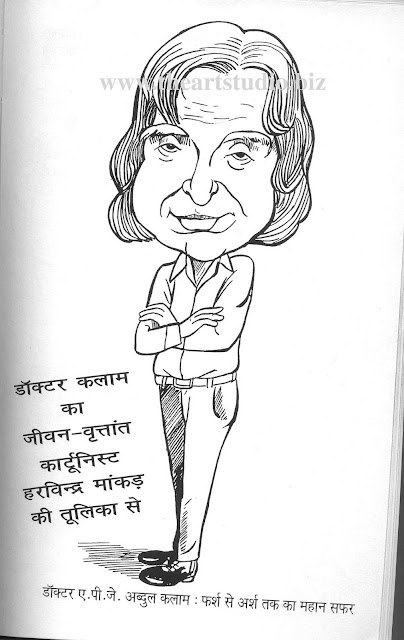 www.theartstudio.biz
डॉक्टर कलाम
का
जीवन-वृत्तांत
कार्टूनिस्ट
हरविन्द्र मांकड़
की तूलिका से
डॉक्टर ए.पी.जे. अब्दुल कलाम : फर्श से अर्श तक का महान सफर